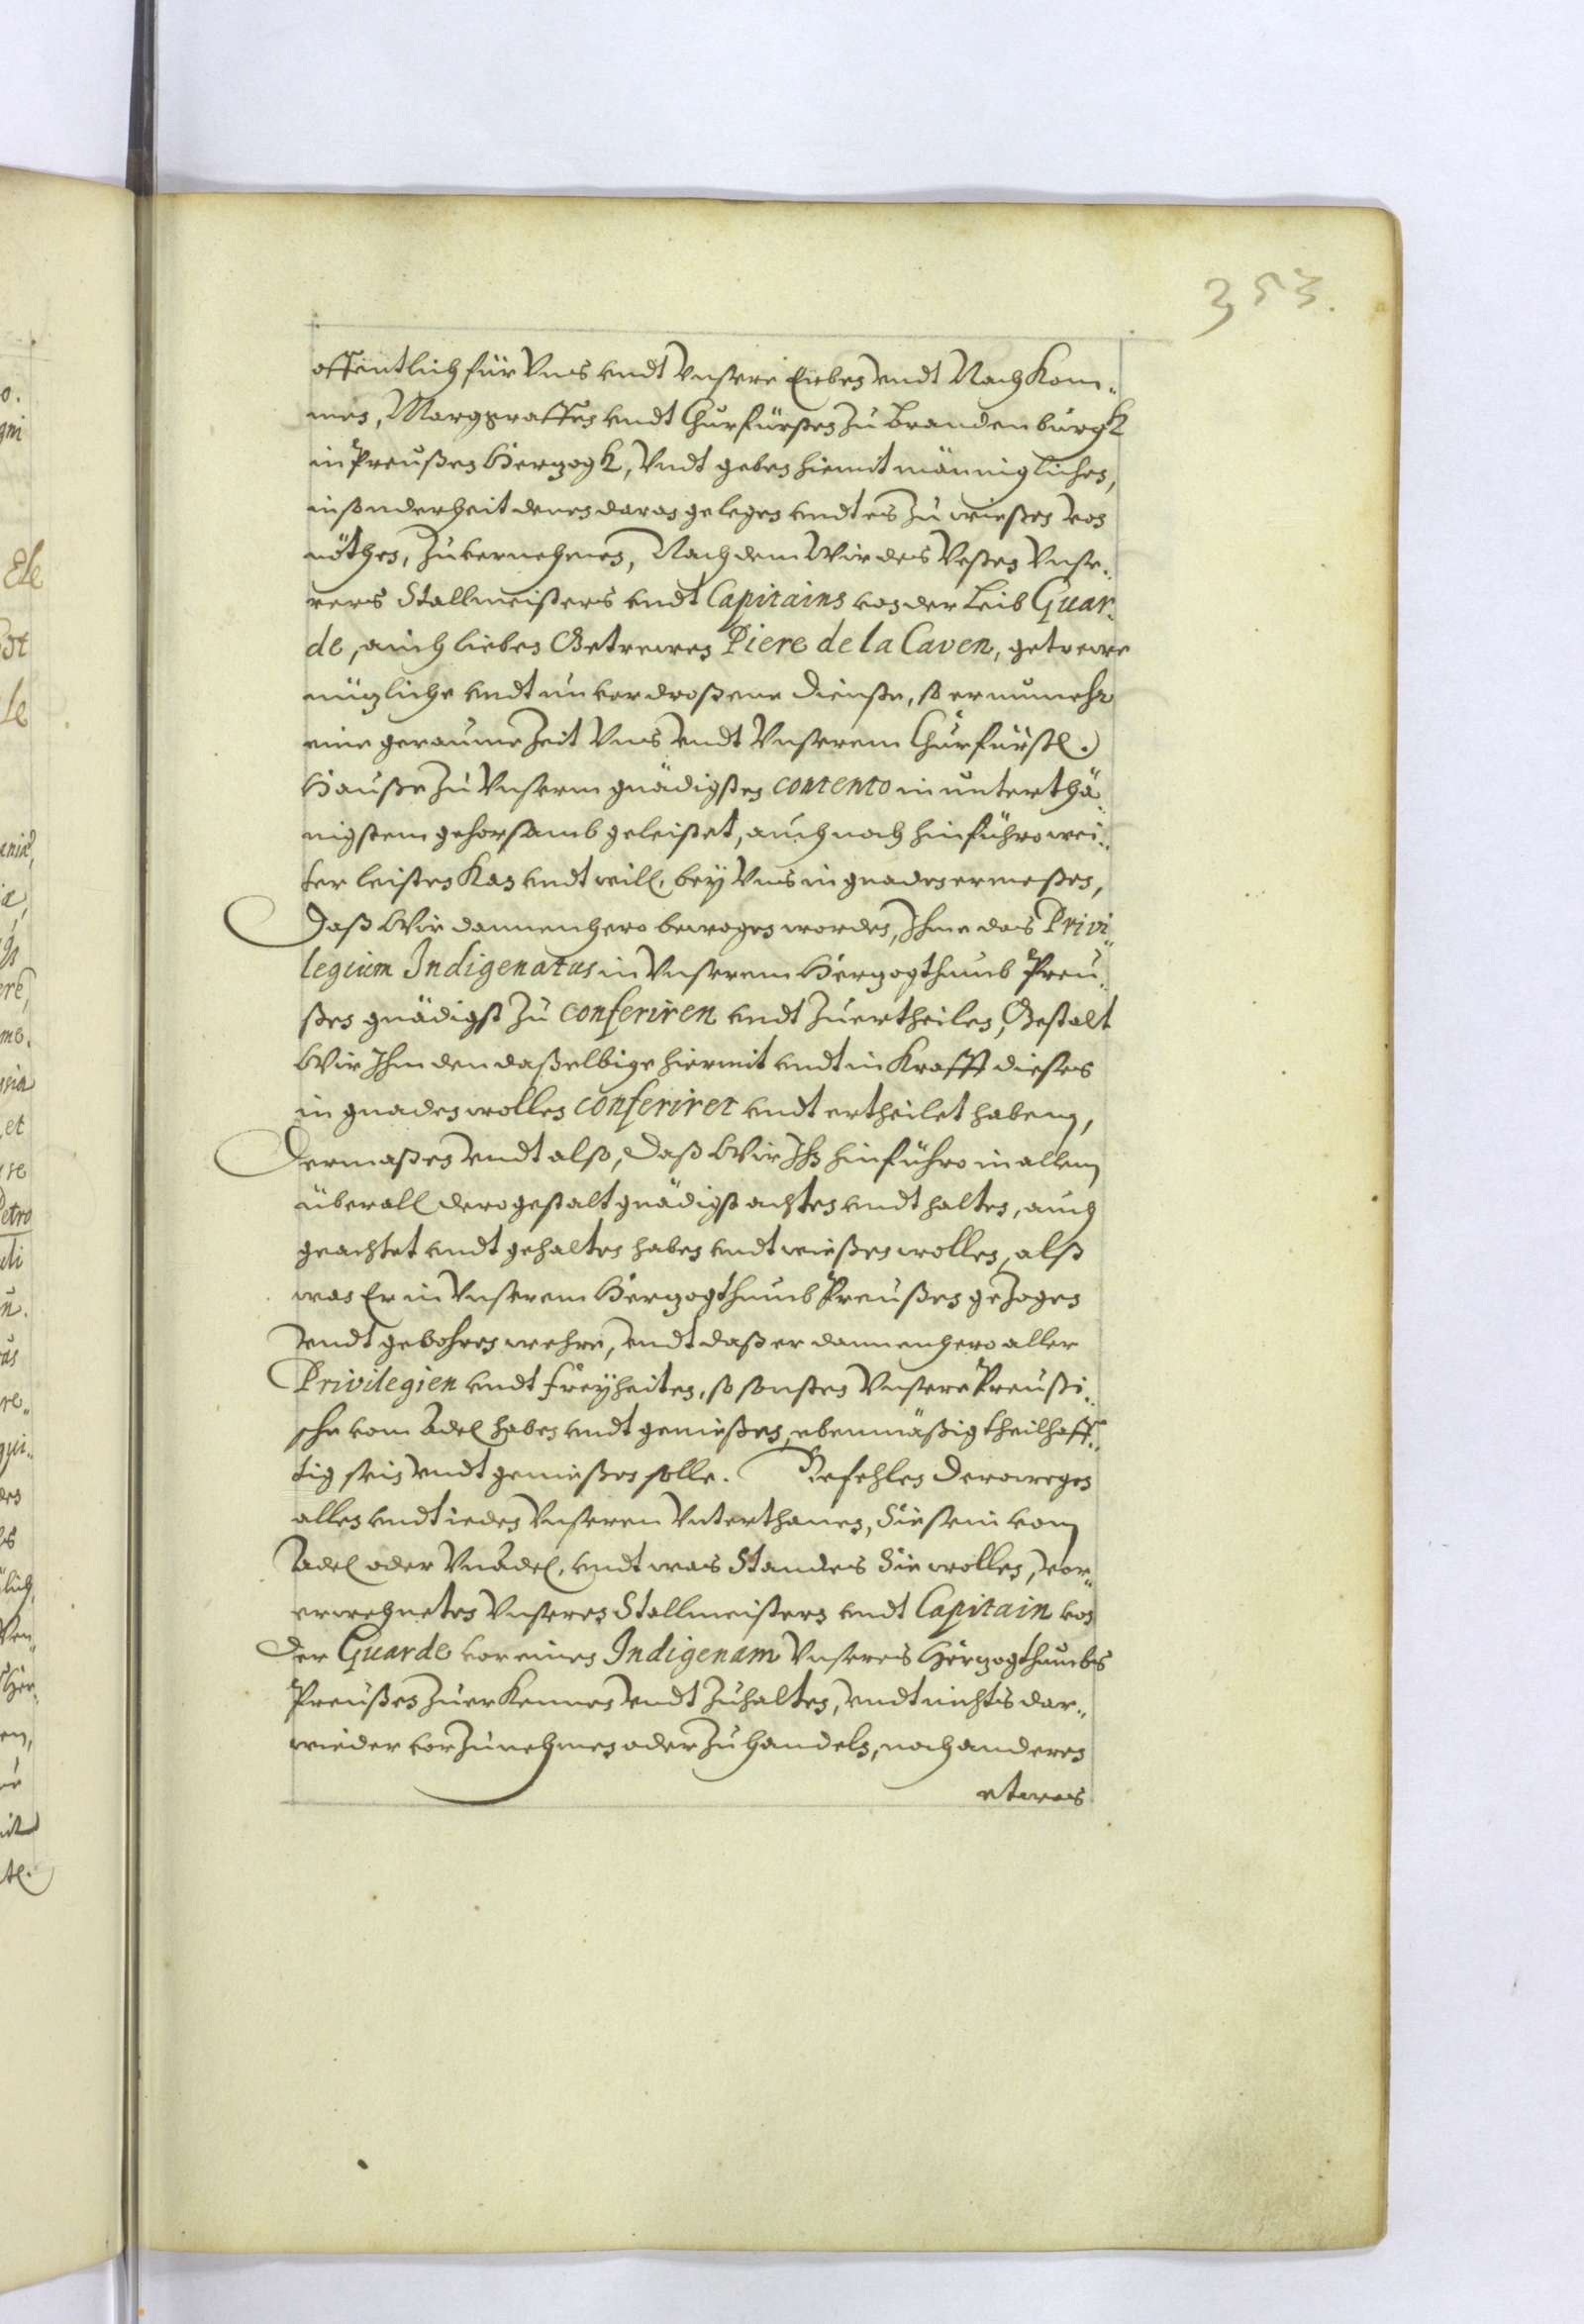 353.
offentlich für Vns vndt Vnsere Erben vndt Nach Kom„
men, Marggraffen vndt Churfürsten zu Brandenburgk
in Preußen Hertzogk, Vndt geben hiemit männiglichen,
insonderheit denen daran gelegen vndt es zu wießen von
nöthen, zuvernehmen, Nach dem Wir des Vesten Vnse„
rers Stallmeisters vndt Capitains von der Leib Guar„
de, auch lieben Getrewen Piere de la Caven, getrewe
nützliche vndt unverdroßene Dienste, so er nunmehr
eine geraume Zeit Vns vndt Vnserem Churfürstl.
Hauße zu Vnserm gnädigsten contento in unterthä„
nigstem gehorsamb geleistet, auch noch hinführo wei„
ter leisten kan vndt will, bey Vns in gnaden ermeßen,
Daß Wir dannenhero bewogen worden, Ihme das Privi„
legium Indigenatus in Vnserem Hertzogthumb Preu„
ßen gnädigst zu conferiren vndt zuertheilen, Gestalt
Wir Ihm den daßelbige hiermit vndt in Krafft dieses
in gnaden wollen conferiret vndt ertheilet haben,
Dermaßen vndt also, daß Wir Ihn hinführo in allem
überall derogestalt gnädigst achten vndt halten, auch
geachtet vndt gehalten haben vndt wießen wollen, alß
wan Er in Vnserem Hertzogthumb Preußen gezogen
vndt gebohren wehre, vndt daß er dannenhero aller
Privilegien vndt Freyheiten, so sonsten Vnsere Preußi„
sche vom Adel haben vndt genießen, ebenmäßig theilhaff„
tig sein vndt genießen solle. Befehlen derowegen
allen vndt ieden Vnseren Vnterthanen, Sie sein vom
Adel oder VnAdel, vndt was Standes Sie wollen, vor„
erwehnten Vnseren Stallmeistern vndt Capitain von
der Guarde vor einen Indigenam Vnseres Hertzogthumbs
Preußen zuerkennen vndt zuhalten, vndt nichts dar„
wieder vorzunehmen oder zuhandeln, noch anderen
etwas